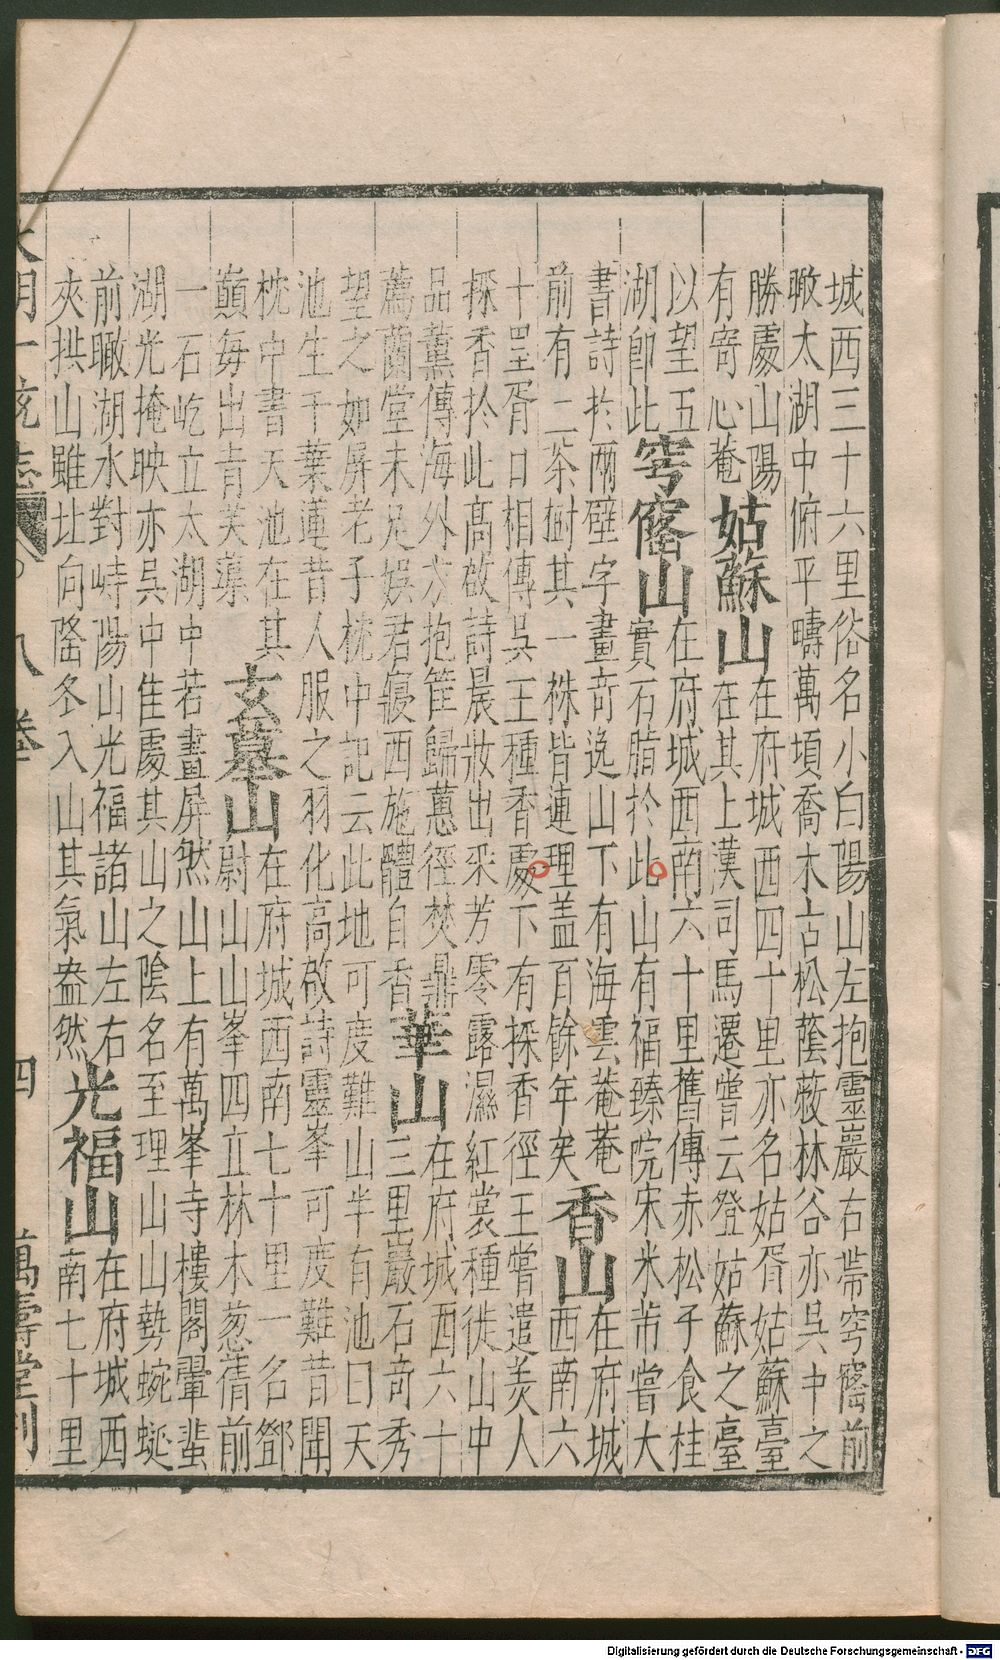 城西三十六里俗名小白陽山左抱靈巖右帶穹窿前
瞰太湖中俯平疇萬頃喬木古松蔭蔽林谷亦吳中之
勝處山陽
有寄心菴
姑蘇山
在府城西四十里亦名姑胥姑蘇臺
在其上漢司馬遷嘗云登姑蘇之臺
以望五
湖即此
穹窿山
在府城西南六十里舊傳赤松子食桂
實石脂於此山有福臻院宋米芾嘗大
書詩於兩壁字畫奇逸山下有海雲菴菴
前有二茶樹其一株皆連理蓋百餘年矣
香山
在府城
西南六
十里胥口相傳吳王種香處下有採香徑王嘗遣美人
採香於此高啟詩晨妝出采芳零露濕紅裳種徙山中
品薰傳海外方抱筐歸蕙徑焚鼎
薦蘭堂未足娛君寢西施體自香
華山
在府城西六十
三里巖石奇秀
望之如屏老子枕中記云此地可度難山半有池曰天
池生千葉蓮昔人服之羽化高啟詩靈峯可度難昔聞
枕中書天池在其
巔每出青芙蕖
玄墓山
在府城西南七十里一名鄧
尉山山峯四立林木葱蒨前
一石屹立太湖中若畫屏然山上有萬峯寺樓閣翬蜚
湖光掩映亦吳中佳處其山之陰名至理山山勢蜿蜒
前瞰湖水對峙陽山光福諸山左右
夾拱山雖址向陰冬入山其氣盎然
光福山
在府城西
南七十里
大明一統志 八卷 四 萬壽堂刊
Digitalisierung gefördert durch die Deutsche Forschungsgemeinschaft - DFG